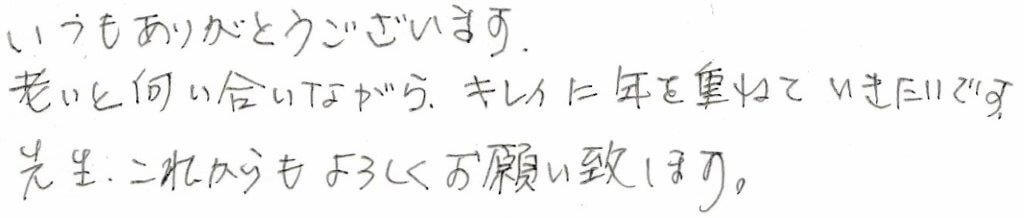 いつもありがとうございます.
老いと向い合いながら、キレイに年を重ねていきたいです。
先生、これからもよろしくお願い致します。